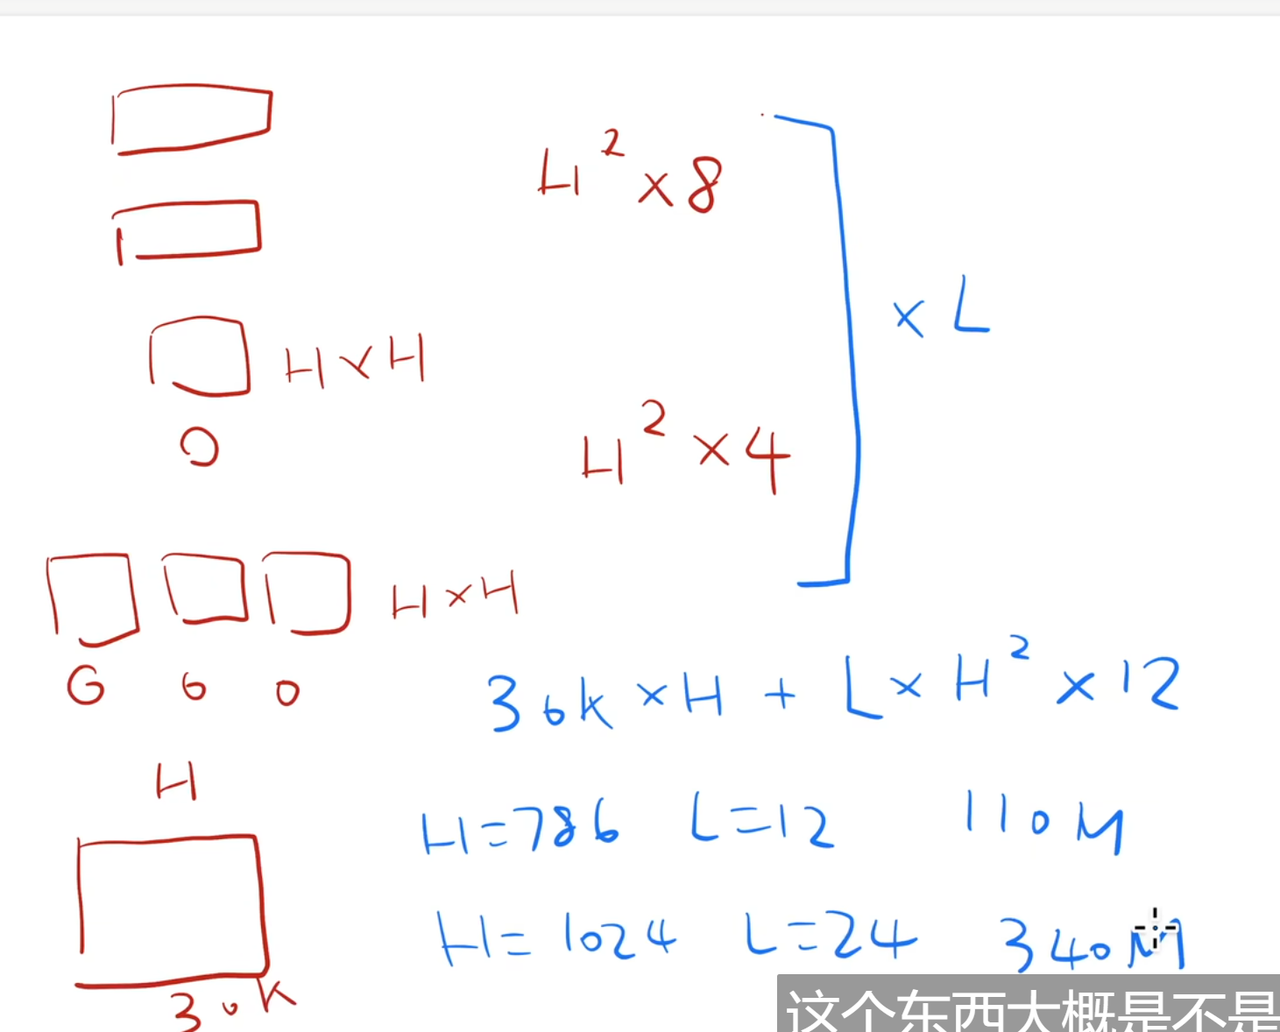 H² × 8
× L
H × H
O
H² × 4
H × H
G 6 0
30k × H + L × H² × 12
H
H = 786 L = 12 110M
H = 1024 L = 24 340M
30K
这个东西大概是不是